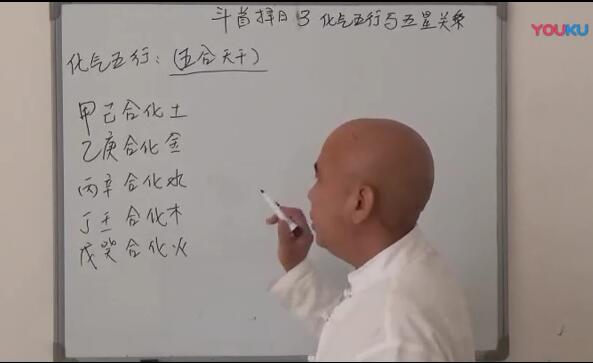 斗首择日3 化气五行与五星关系
YOUKU
化气五行：(五合天干)
甲己合化土
乙庚合化金
丙辛合化水
丁壬合化木
戊癸合化火